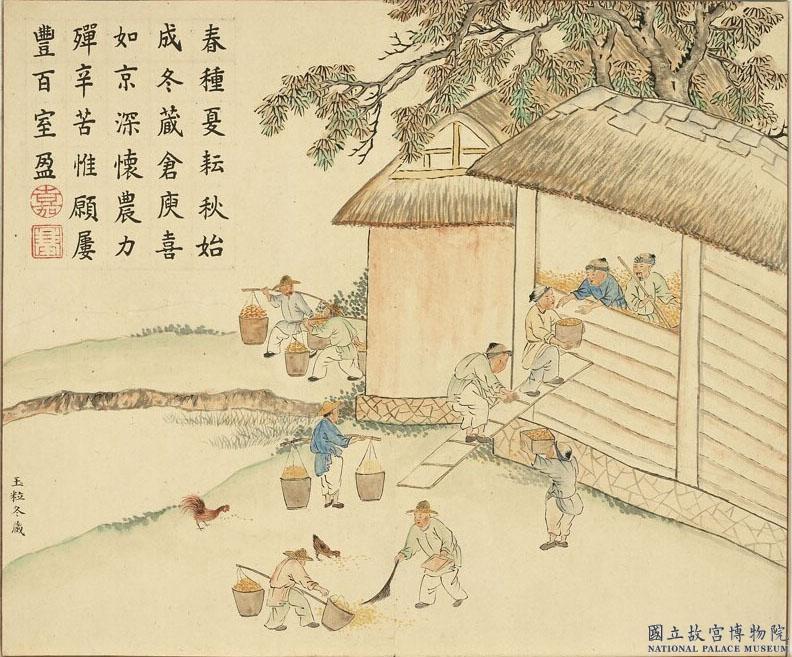 春種夏耘秋始
成冬藏倉庾喜
如京深懷農力
殫辛苦惟願屢
豐百室盈
嘉
玉粒冬藏
國立故宮博物院
NATIONAL PALACE MUSEUM